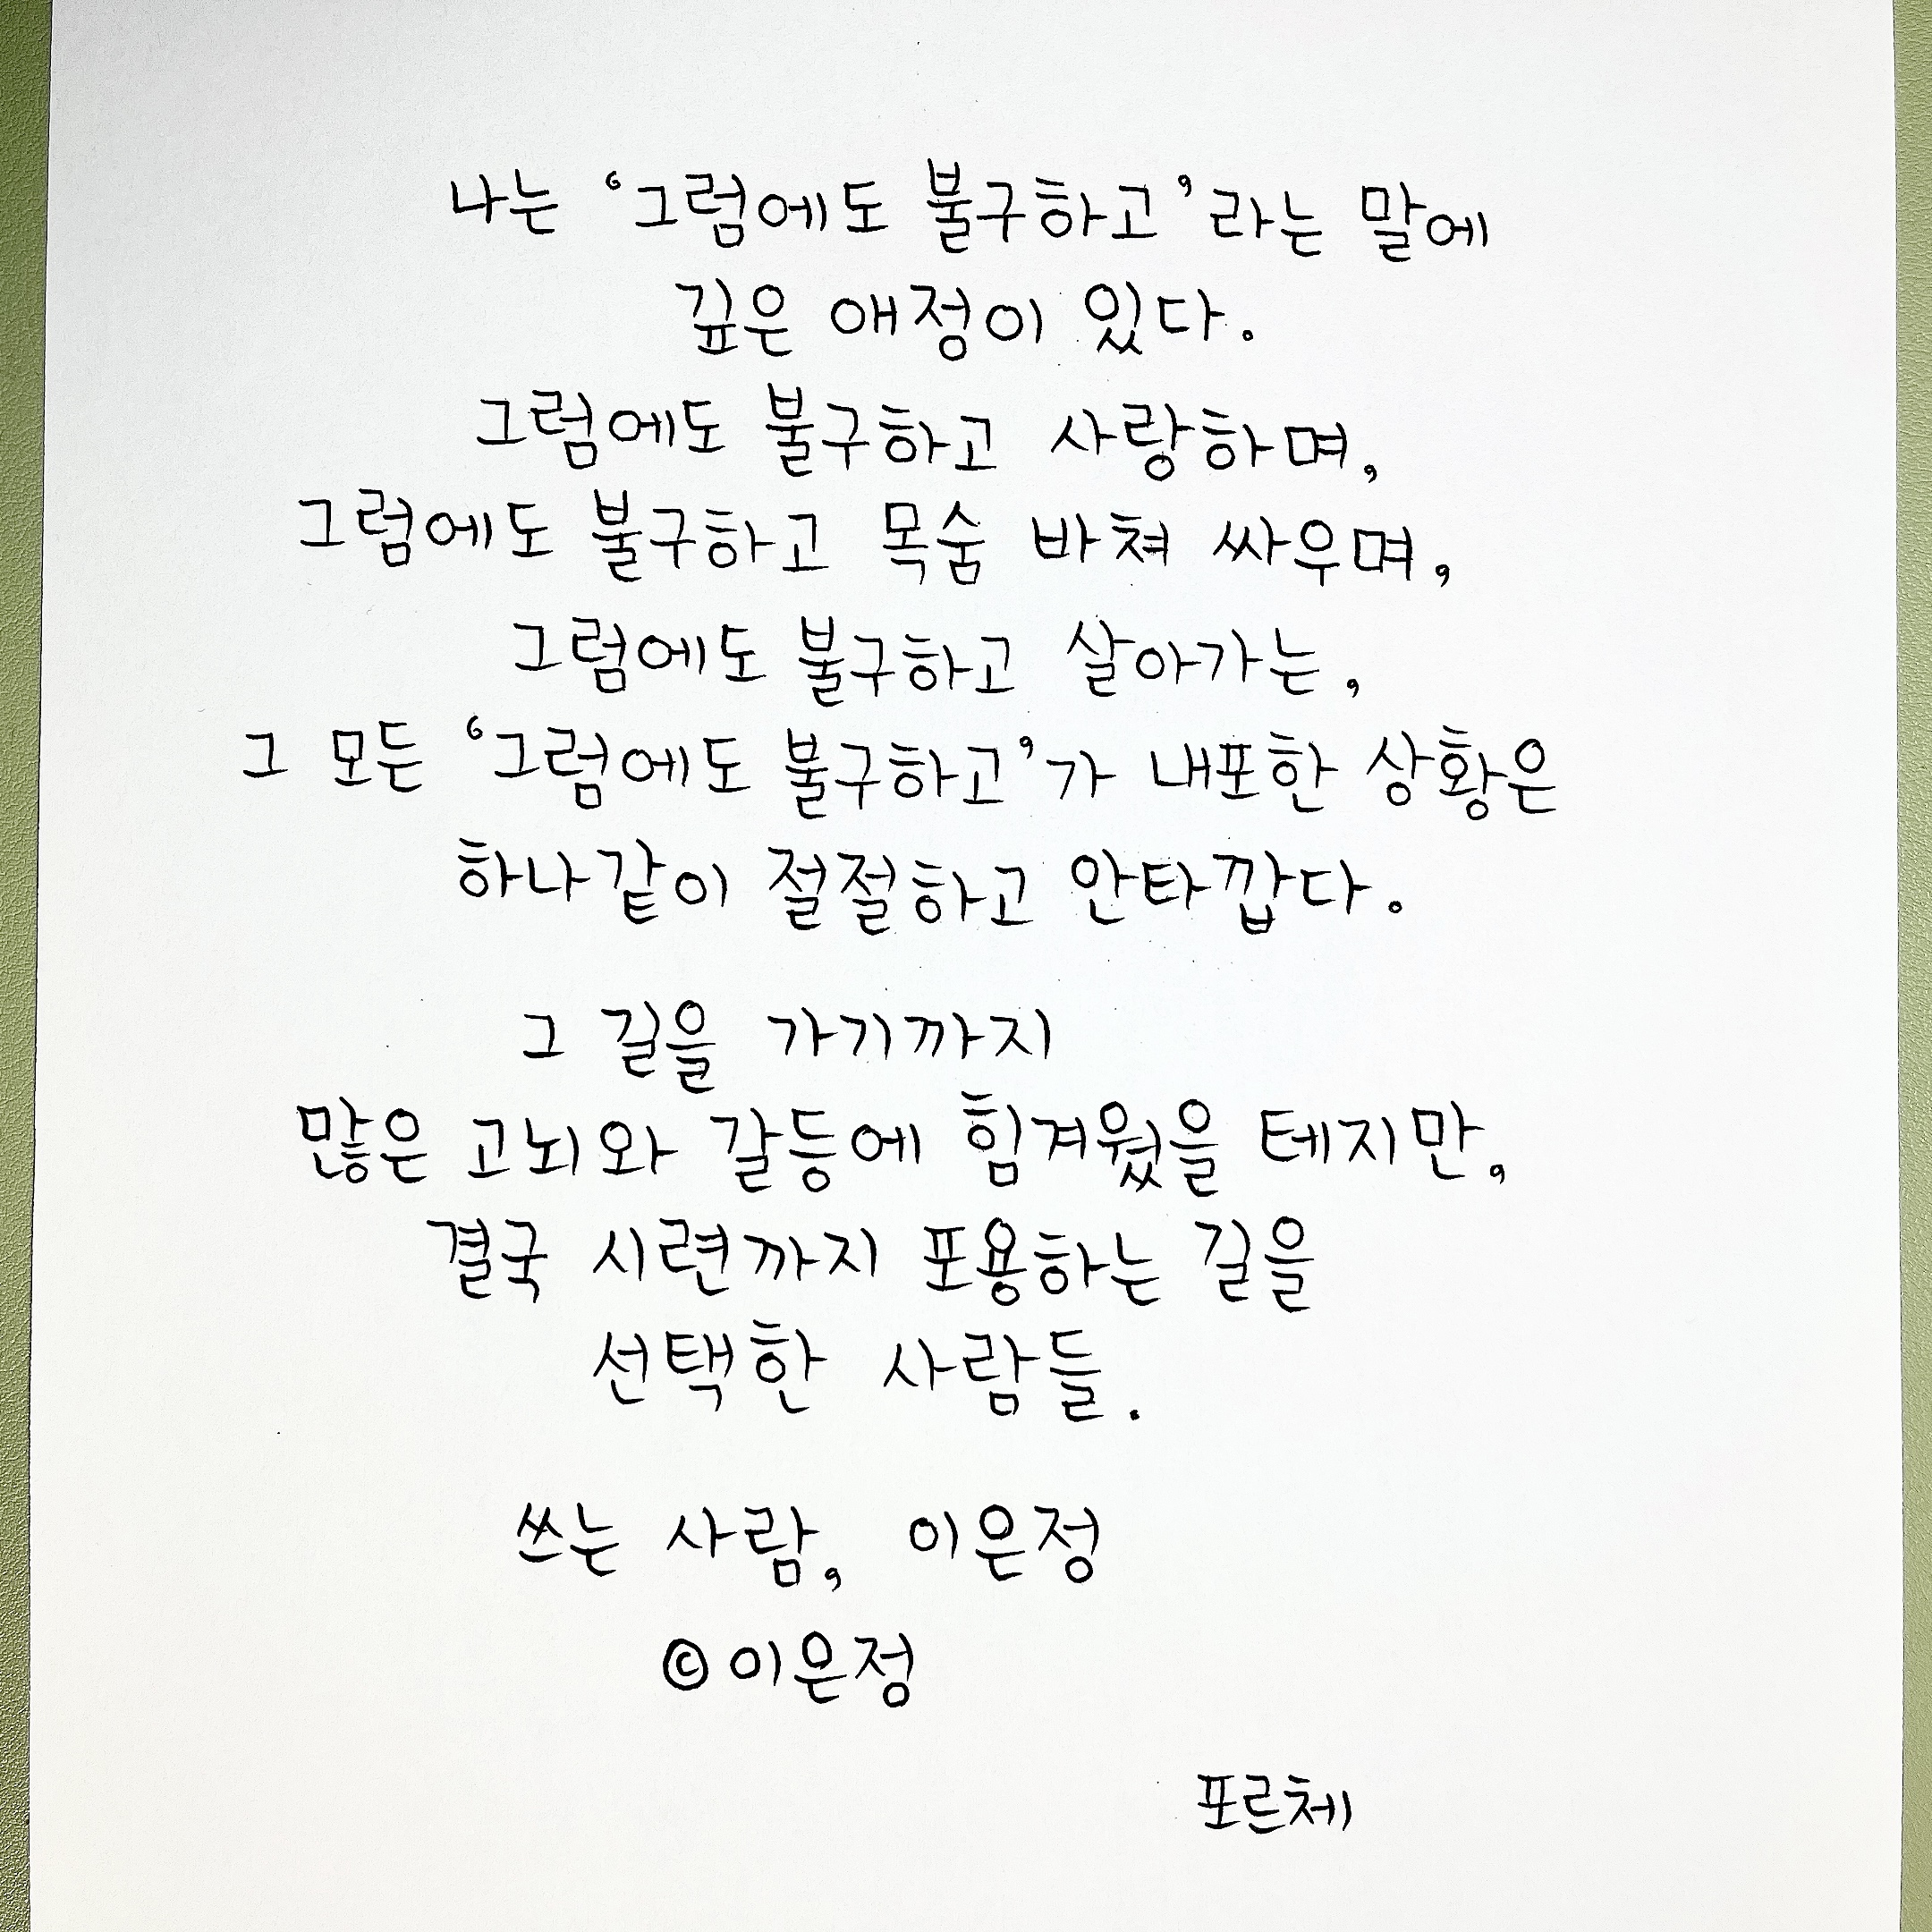 나는 ‘그럼에도 불구하고’라는 말에
깊은 애정이 있다.
그럼에도 불구하고 사랑하며,
그럼에도 불구하고 목숨 바쳐 싸우며,
그럼에도 불구하고 살아가는,
그 모든 ‘그럼에도 불구하고’가 내포한 상황은
하나같이 절절하고 안타깝다.
그 길을 가기까지
많은 고뇌와 갈등에 힘겨웠을 테지만,
결국 시련까지 포용하는 길을
선택한 사람들.
쓰는 사람, 이은정
©이은정
포르체